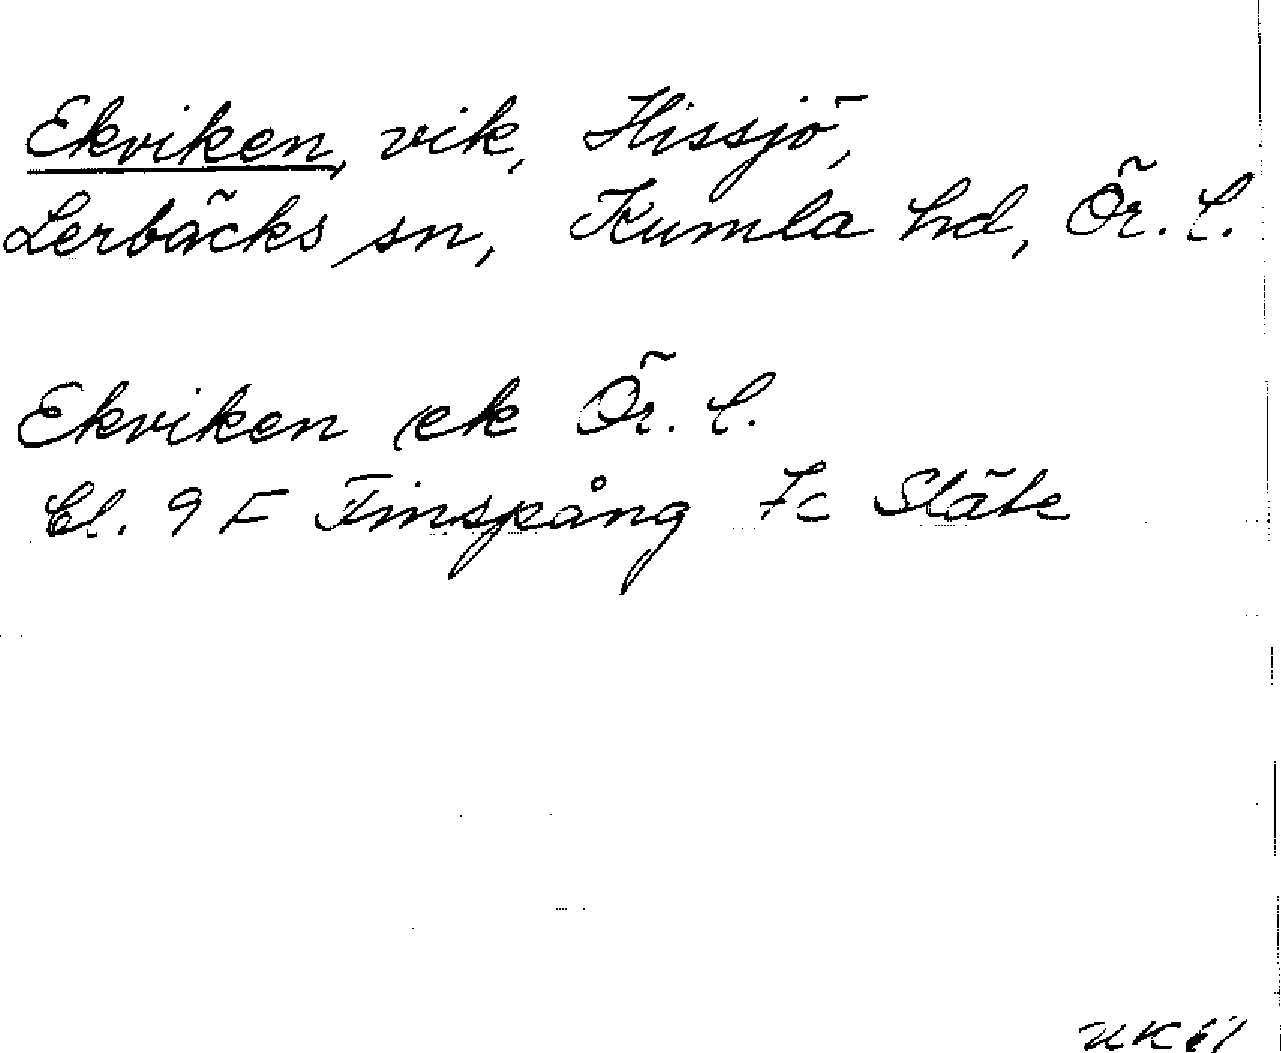 Ekviken, vik, Hissjö,
Lerbäcks sn, Kumla hd, Ör. l.
Ekviken ek Ör. l.
Bl. 9 F Finspång 7c Släte
UK 61